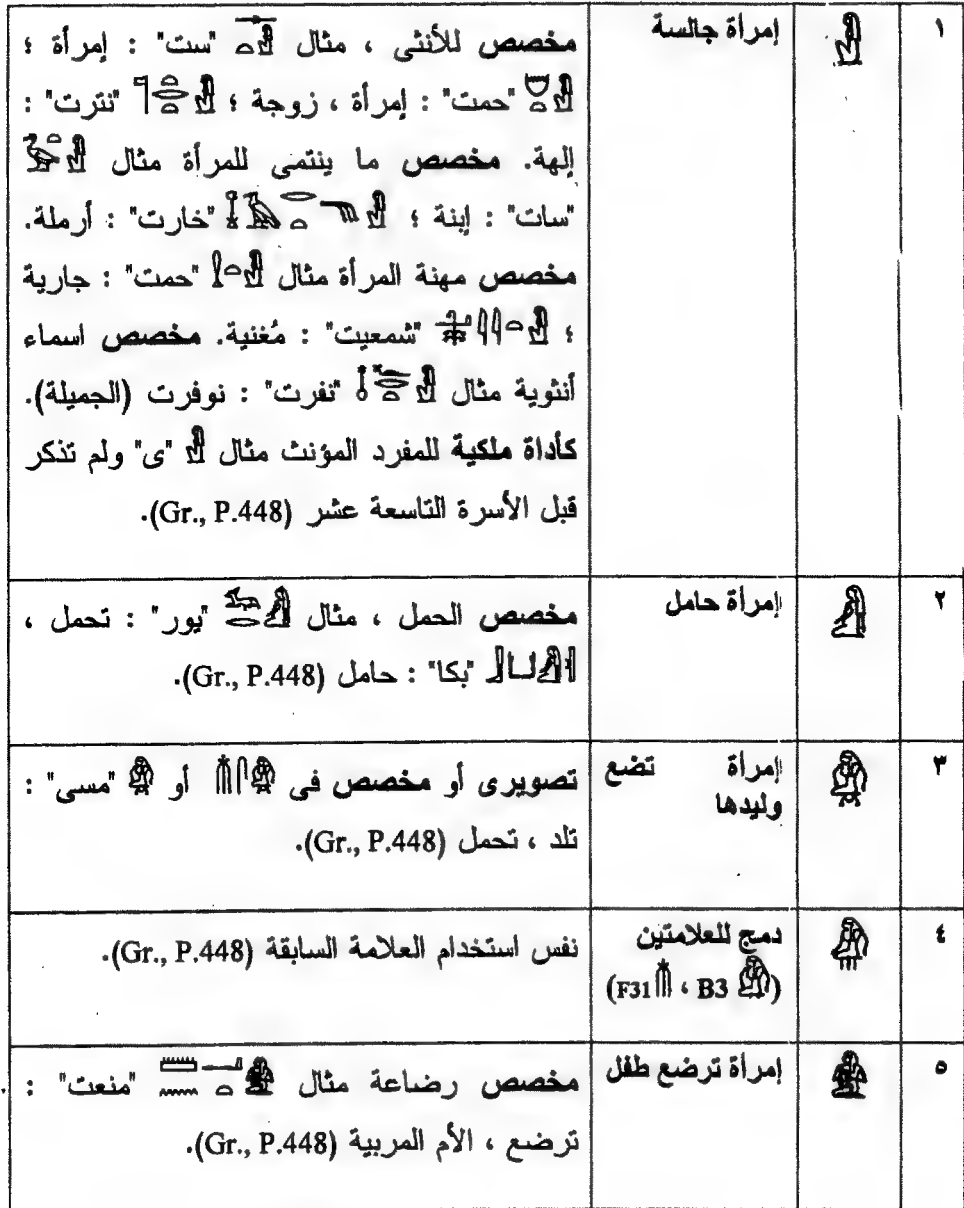 ١ 𓁐 إمرأة جالسة
مخصص للأنثى ، مثال "ست" : إمرأة ؛
"حمت" : إمرأة ، زوجة ؛ "نترت" :
إلهة. مخصص ما ينتمى للمرأة مثال
"سات" : إبنة ؛ "خارت" : أرملة.
مخصص مهنة المرأة مثال "حمت" : جارية
؛ "شمعيت" : مُغنية. مخصص اسماء
أنثوية مثال "نفرت" : نوفرت (الجميلة).
كأداة ملكية للمفرد المؤنث مثال 𓁐 "ى" ولم تذكر
قبل الأسرة التاسعة عشر (Gr., P.448).
٢ 𓁒 إمرأة حامل
مخصص الحمل ، مثال "يور" : تحمل ،
"بكا" : حامل (Gr., P.448).
٣ 𓁓 إمرأة تضع
وليدها
تصويرى أو مخصص فى أو 𓁓 "مسى" :
تلد ، تحمل (Gr., P.448).
٤ 𓁔 دمج للعلامتين
(B3 𓁓 ، F31 𓄟)
نفس استخدام العلامة السابقة (Gr., P.448).
٥ 𓁕 إمرأة ترضع طفل
مخصص رضاعة مثال "منعت" :
ترضع ، الأم المربية (Gr., P.448).